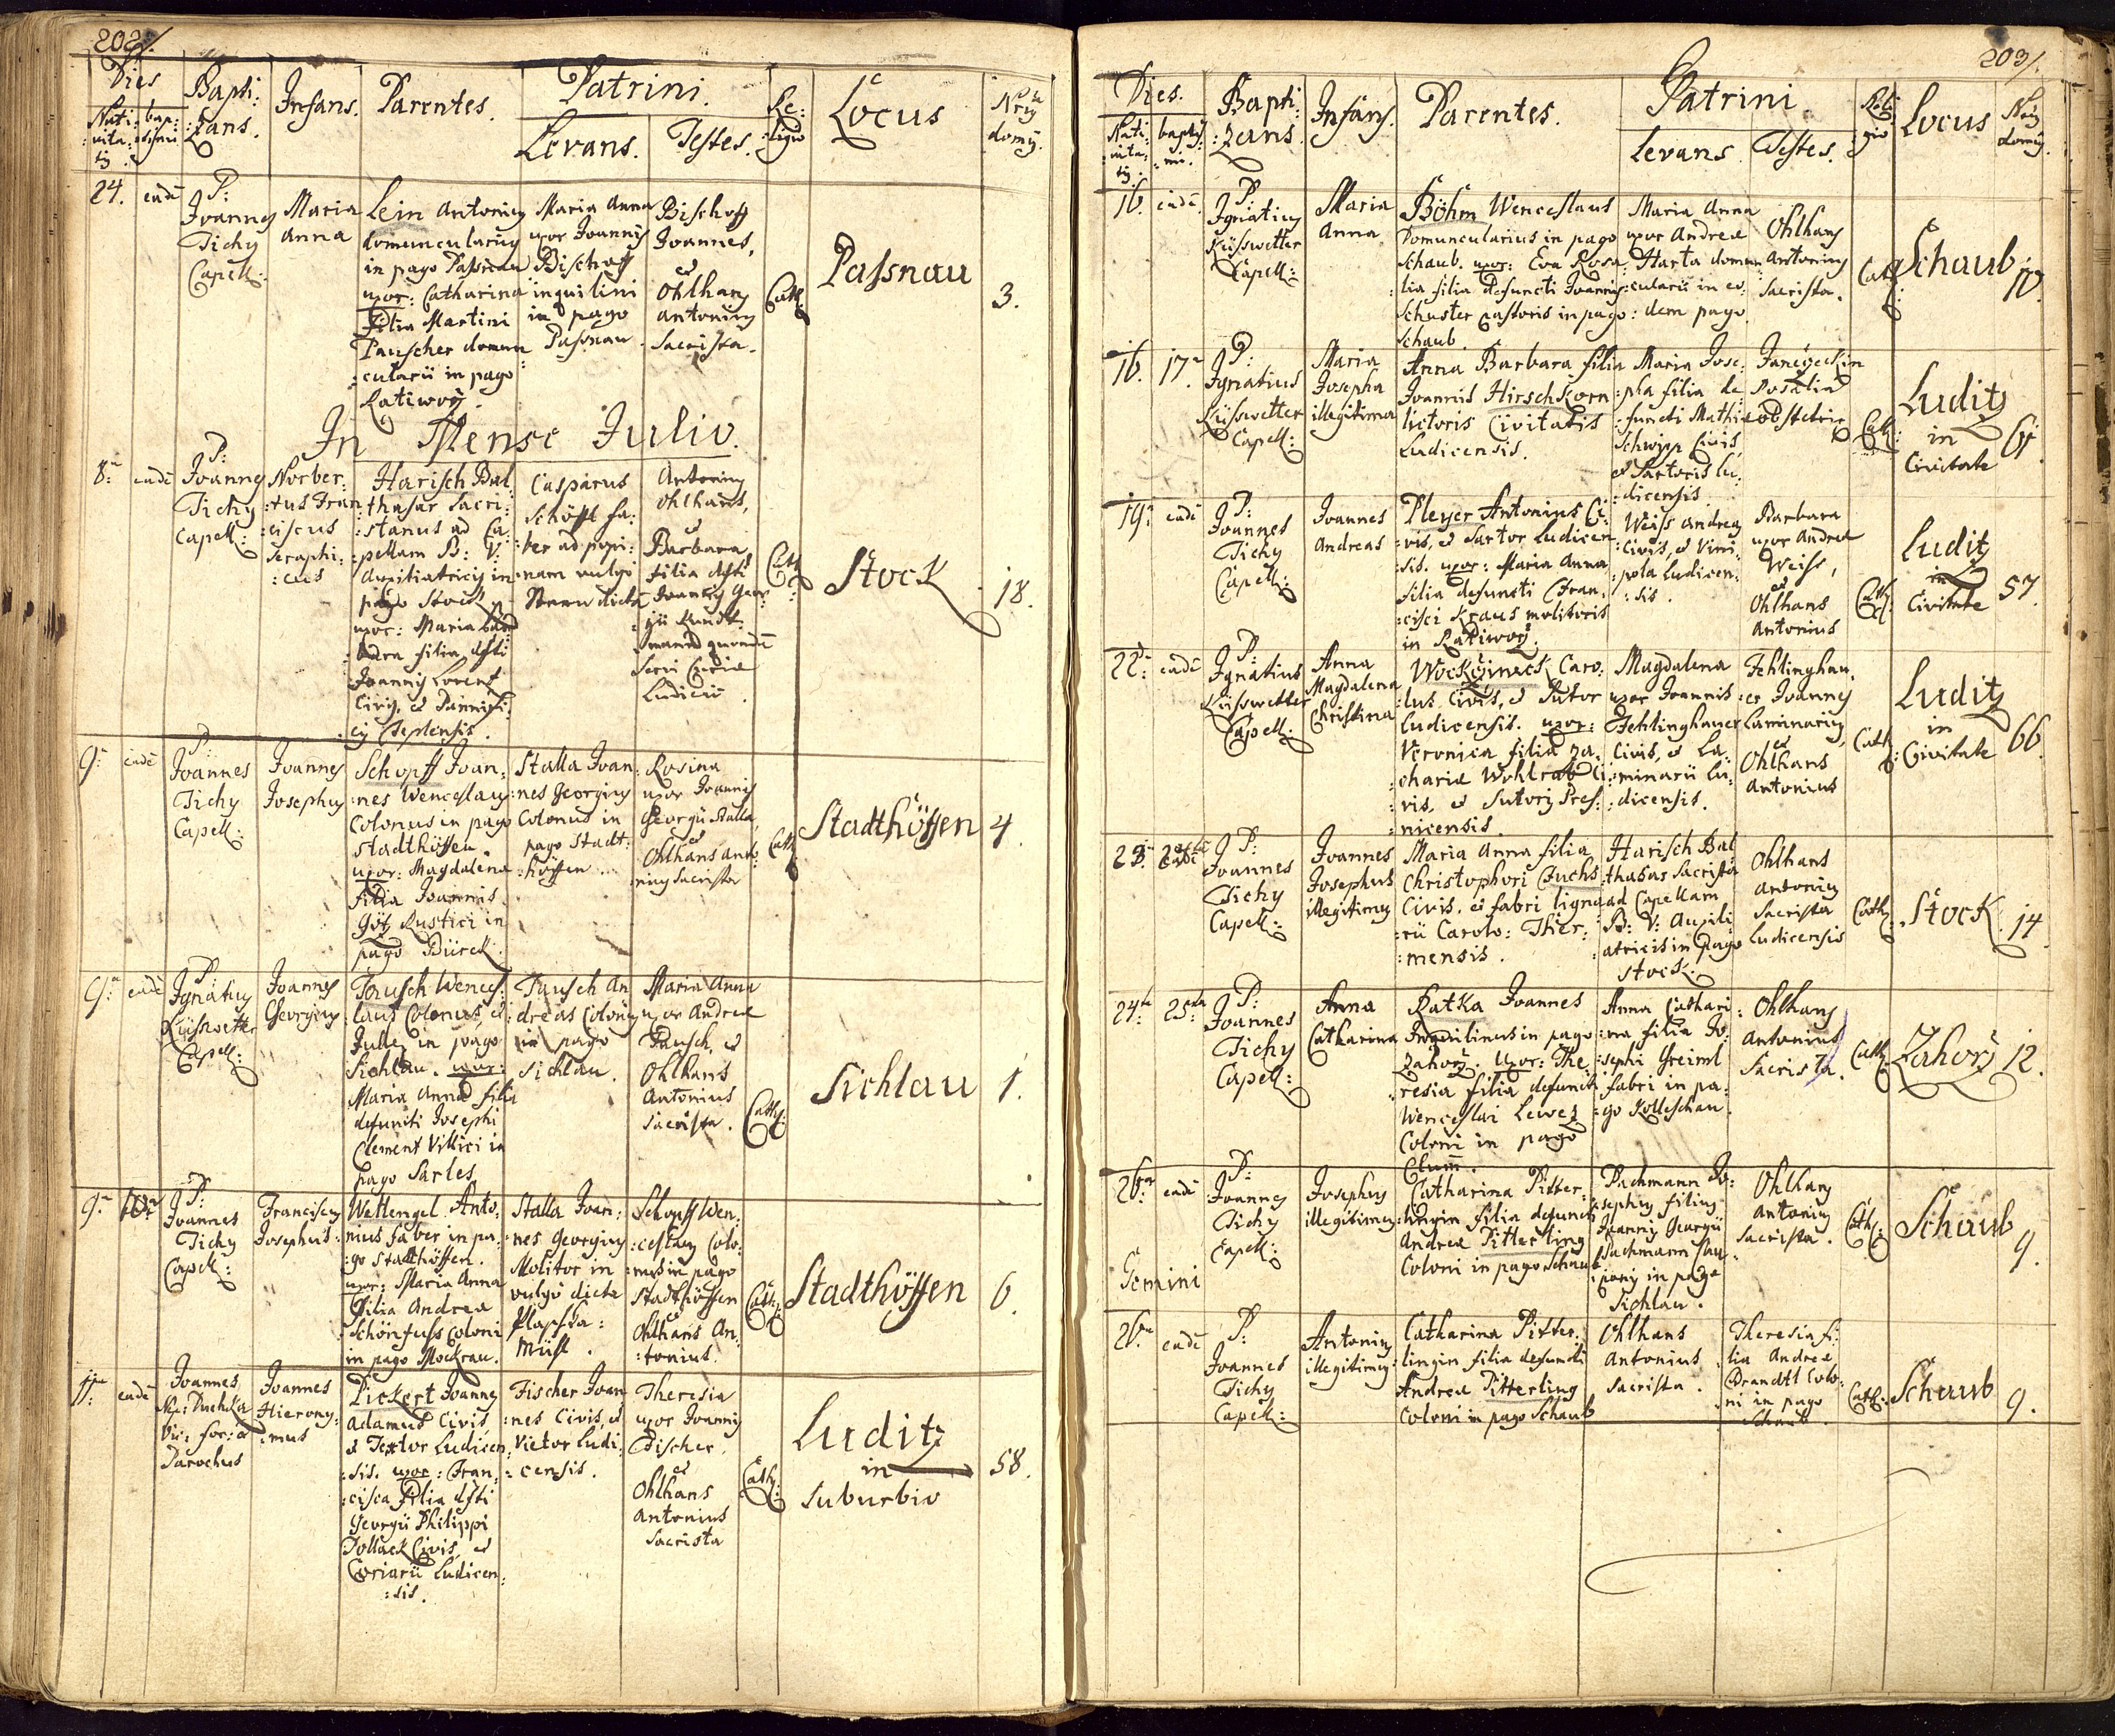 202.
Dies
Nati: bap:
:vita: :tismi
:tis.
Bapti:
:zans.
Infans.
Parentes.
Patrini.
Levans. Testes.
Re:
:ligio
Locus
Nrus
domus.
24. eadē
P:
Joannes
Tichy
Capell:
Maria
Anna
Lein Antonius
domuncularius
in pago Passnau
uxor: Catharina
Filia Martini
Pauscher domun
:cularii in pago
Ratiworz.
Maria Anna
uxor Joannis
Bischoff
inquilini
in pago
Passnau
Bischoff
Joannes,
et
Ohlhans
Antonius
Sacrista.
Cath:
Passnau
3.
In Mense Julio.
8: eadē
P:
Joannes
Tichy
Capell:
Norber:
:tus Fran
:ciscus
Seraphi:
:cus
Harisch Bal
:thasar Sacri:
:stanus ad Ca:
:pellam B: V:
Auxiliatricis in
pago Stock
uxor: Maria Bar
:bara filia dfti
Joannis Lorent
Civis, et Pannifi:
:cis Teplensis.
Casparus
Schöffl fa:
:ber ad popi:
:nam vulgo
dicta
Antonius
Ohlhans,
et
Barbara
filia dfti
Joannis Geor
:gii
quondā
Servi Curiæ
Ludicii.
Cath:
Stock
18.
9: eadē
P:
Joannes
Tichy
Capell:
Joannes
Josephus
Schopff Joan:
:nes Wenceslaus
Colonus in pago
Stadthöffen.
uxor: Magdalena
filia Joannis
Götz Rustici in
pago Bürck.
Stalla Joan:
:nes Georgius
Colonus in
pago Stadt:
:höffen.
Rosina
uxor Joannis
Georgii Stalla,
et
Ohlhans Anto:
:nius Sacrista
Cath:
Stadthöffen
4.
9: eadē
P:
Ignatius
Küsswetter
Capell:
Joannes
Georgius
Tausch Wences:
:laus Colonus, et
Judex in pago
Sichlau. uxor:
Maria Anna filia
defuncti Josephi
Clement Villici in
pago Sarles
Tausch An
:dreas Colonus
in pago
Sichlau.
Maria Anna
uxor Andreæ
Tausch, et
Ohlhans
Antonius
Sacrista.
Cath:
Sichlau
1.
9. 10.
P:
Joannes
Tichy
Capell:
Franciscus
Josephus
Wettengel Anto:
:nius faber in pa:
:go Stadthöffen.
uxor: Maria Anna
filia Andreæ
Schönfuss Coloni
in pago Mockrau.
Stalla Joan:
:nes Georgius
Molitor in
vulgo dicta
Plapska:
Mühl.
Schopff Wen:
:ceslaus Colo:
:nus in pago
Stadthöffen
et
Ohlhans An:
:tonius.
Cath:
Stadthöffen
6.
11. eadē
Joannes
Nep: Duchka
Vic: for: et
Parochus
Joannes
Hierony:
:mus
Pickert Joannes
Adamus Civis,
et Textor Ludicen
:sis. uxor: Fran:
:cisca filia dfti
Georgii Philippi
Pollack Civis, et
Coriarii Ludicen:
:sis.
Fischer Joan
:nes Civis, et
Vietor Ludi:
:censis.
Theresia
uxor Joannis
Fischer.
et
Ohlhans
Antonius
Sacrista
Cath:
Luditz
in
Suburbio
58.
203.
Dies.
Nati:
:vita:
:tis.
baptis:
:mi.
Bapti
:zans.
Infans.
Parentes.
Patrini.
Levans. Testes.
Reli:
:gio
Locus
Nrus
domus.
16. eadē
P:
Ignatius
Küsswetter
Capell:
Maria
Anna
Böhm Wenceslaus
Domuncularius in pago
Schaub. uxor: Eva Rosa:
:lia filia defuncti Joannis
Schuster Pastoris in pago
Schaub.
Maria Anna
uxor Andreæ
Harta domun
:cularii in eo:
:dem pago.
Ohlhans
Antonius
Sacrista.
Cath:
Schaub
10.
16. 17.
P:
Ignatius
Küsswetter
Capell:
Maria
Josepha
illegitima
Anna Barbara filia
Joannis Hirschkorn
lictoris Civitatis
Ludicensis.
Maria Jose:
:pha filia de
:functi Mathiæ
Schwipp Civis,
et Sartoris Lu:
:dicensis.
Janeczeckin
Rosalia
obstetrix
Cath:
Luditz
in
Civitate
61.
19. eadē
P:
Joannes
Tichy
Capell:
Joannes
Andreas
Pleyer Antonius Ci:
:vis, et Sartor Ludicen
:sis. uxor: Maria Anna
filia defuncti Fran:
:cisci Kraus molitoris
in Ratiworz.
Weiss Andreas
Civis, et Vini:
:pola Ludicen:
:sis.
Barbara
uxor Andreæ
Weiss,
et
Ohlhans
Antonius
Cath:
Luditz
in
Civitate
57.
22. eadē
P:
Ignatius
Küsswetter
Capell:
Anna
Magdalena
Christina
Caro:
:lus Civis, et Sutor
Ludicensis. uxor:
Veronica filia Za:
:chariæ Wohlrab Ci:
:vis, et Sutoris Pres:
:nicensis.
Magdalena
uxor Joannis
Fehlinghauer
Civis, et La:
:minarii Lu:
:dicensis.
Fehlinghau:
:er Joannes
Laminarius,
et
Ohlhans
Antonius
Cath:
Luditz
in
Civitate
66.
23.
P:
Joannes
Tichy
Capell:
Joannes
Josephus
illegitimus
Maria Anna filia
Christophori Fuchs
Civis, et fabri ligna
:rii Carolo: Ther:
:mensis.
Harisch Bal
:thasar Sacrista
ad Capellam
B: V: Auxili:
:atricis in pago
Stock.
Ohlhans
Antonius
Sacrista
Ludicensis
Cath:
Stock
14.
24. 25.
P:
Joannes
Tichy
Capell:
Anna
Catharina
Ratka Joannes
Inquilinus in pago
Zahorz. Uxor: The:
:resia filia defuncti
Wenceslai Lewez
Coloni in pago
Clum.
Anna Cathari:
:na filia Jo:
:sephi Greiml
fabri in pa:
:go Kolleschau.
Ohlhans
Antonius
Sacrista.
Cath:
Zahorz
12.
26. eadē
P:
Joannes
Tichy
Capell:
Josephus
illegitimus
Catharina Pitter:
:lingin filia defuncti
Andreæ Pitterling
Coloni in pago Schaub
Pachmann Jo:
:sephus filius
Joannis Georgii
Pachmann
in pago
Sichlau.
Ohlhans
Antonius
Sacrista.
Cath:
Schaub
9.
Gemini
26. eadē
P:
Joannes
Tichy
Capell:
Antonius
illegitimus
Catharina Pitter:
:lingin filia defuncti
Andreæ Pitterling
Coloni in pago Schaub
Ohlhans
Antonius
Sacrista.
Theresia fi:
:lia Andreæ
Brandtl Colo:
:ni in pago
Schaub.
Cath:
Schaub
9.